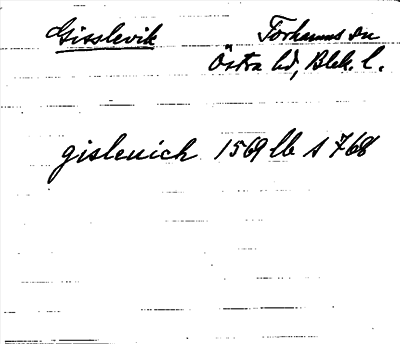 Gisslevik Torhamns sn
Östra hd, Blek. l.
gisleuich 1569 lb s 768